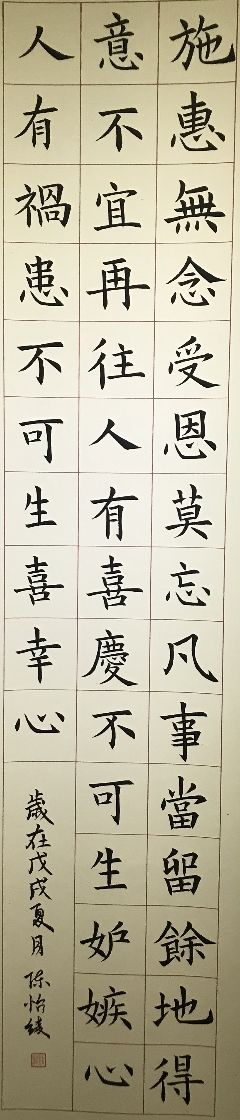 施惠無念受恩莫忘凡事當留餘地得
意不宜再往人有喜慶不可生妒嫉心
人有禍患不可生喜幸心
歲在戊戌夏月 陳怡綾